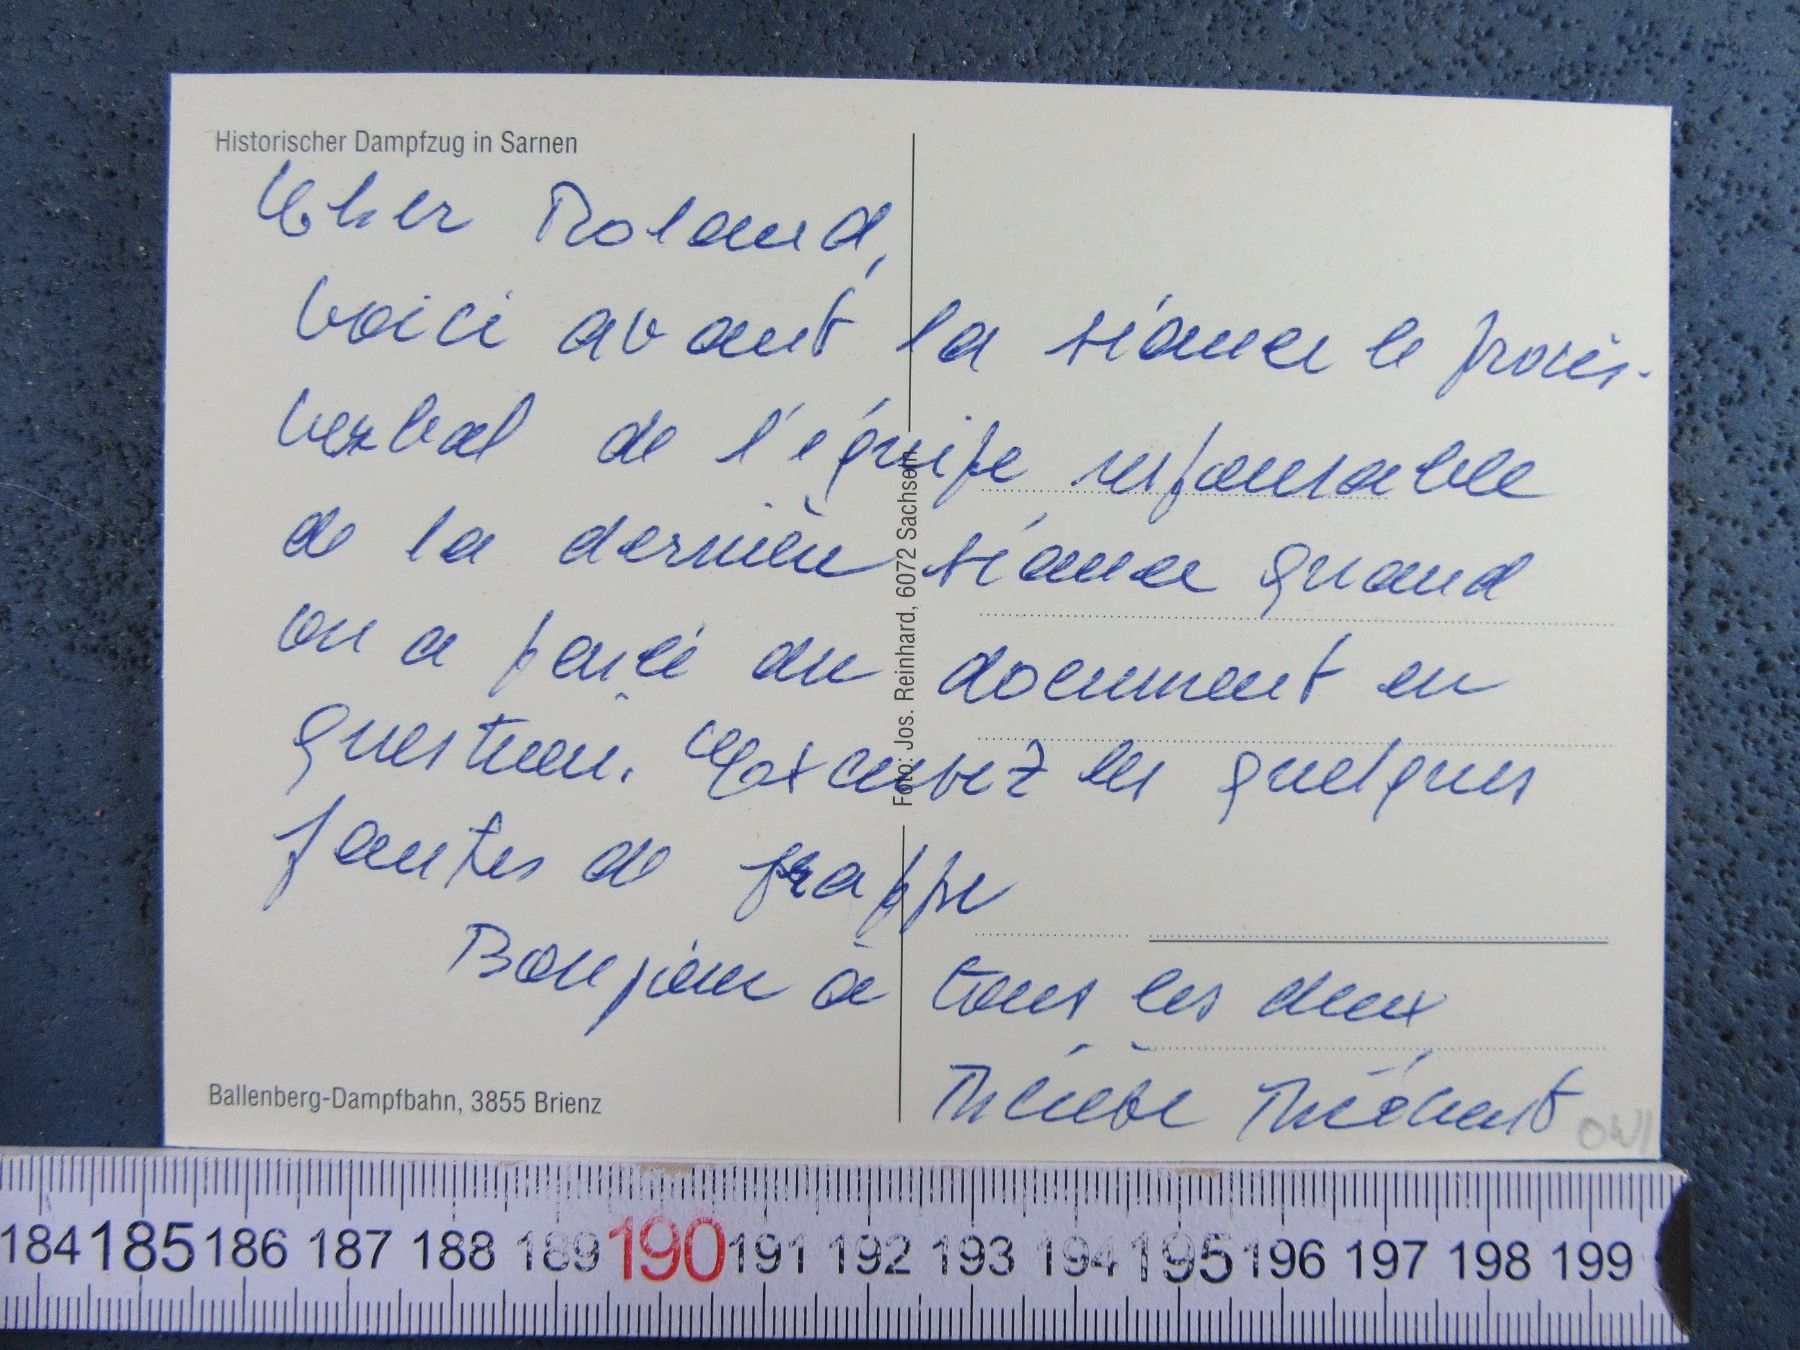 Historischer Dampfzug in Sarnen
Cher Roland,
Voici avant la séance le procès-
verbal de l'équipe responsable
de la dernière séance quand
on a parlé du document en
question. Excusez les quelques
fautes de frappe
Bonjour à tous les deux
Foto: Jos. Reinhard, 6072 Sachseln
Ballenberg-Dampfbahn, 3855 Brienz
OW1
184 185 186 187 188 189 190 191 192 193 194 195 196 197 198 199